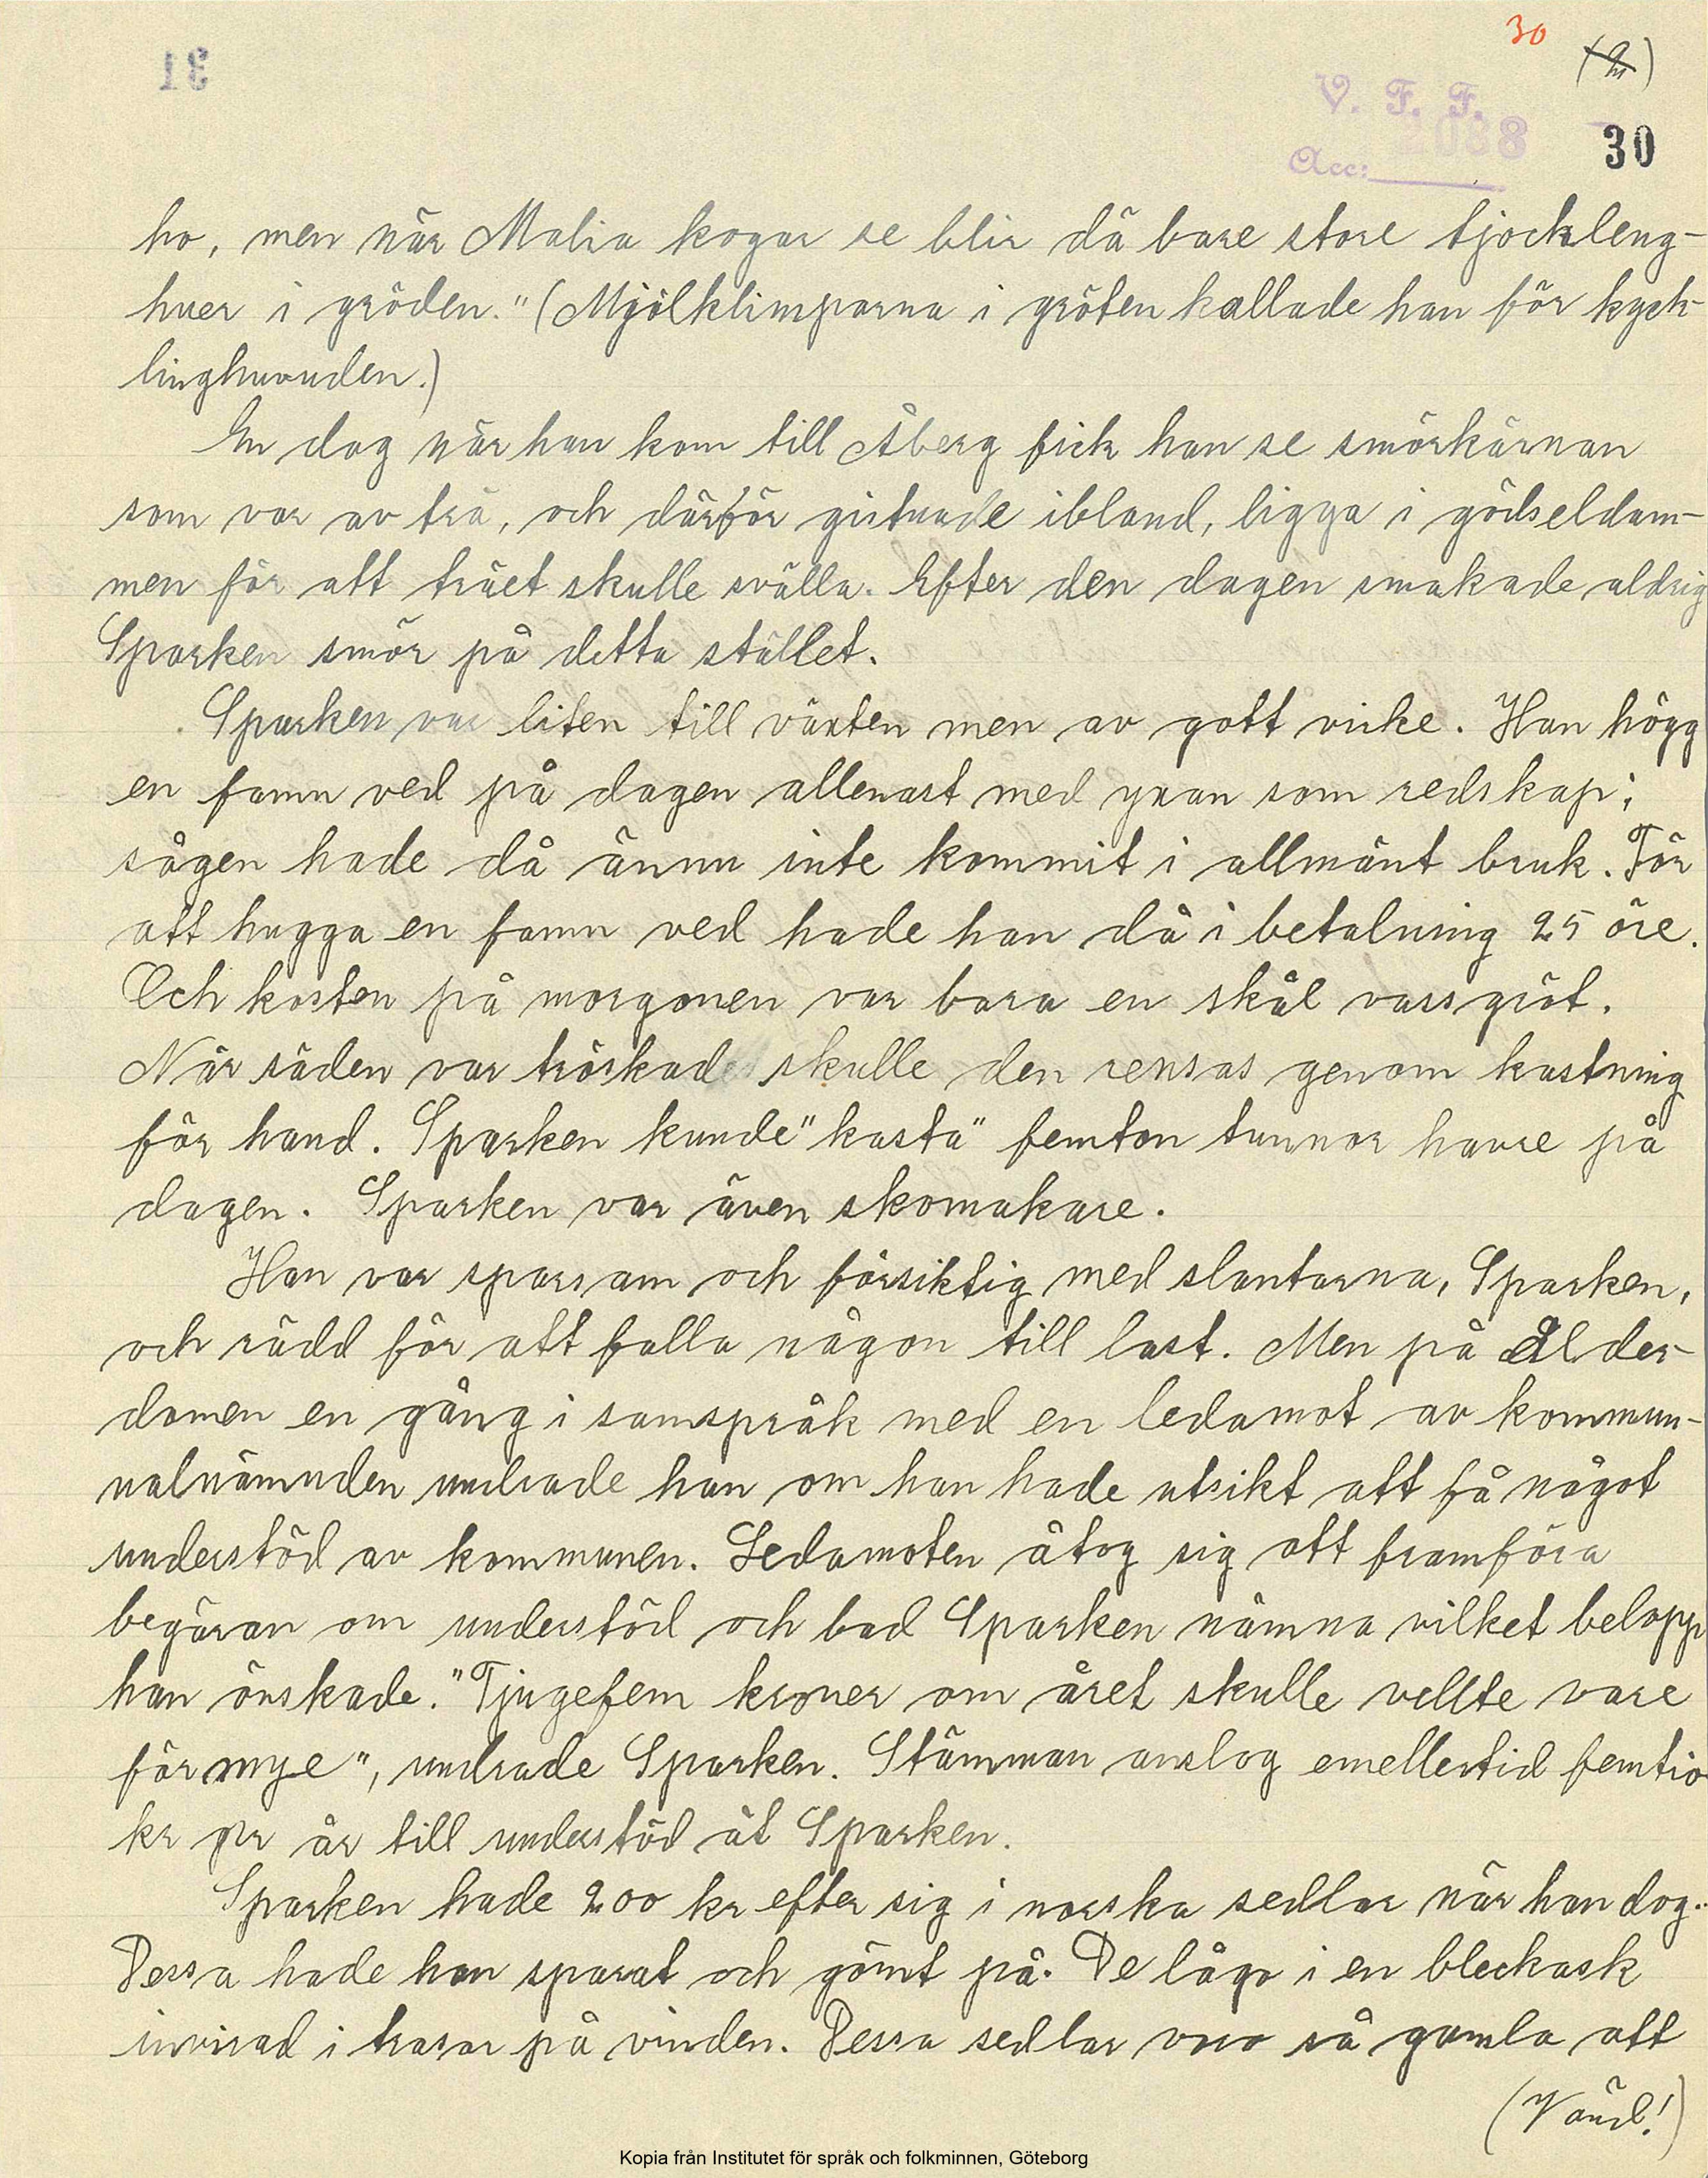 30
(2)
31
V. F. F.
2088
Acc:
30
ho, men när Malia kogar se blir då bare store tjockleng-
huer i gröden." (Mjölklimparna i gröten kallade han för kyck-
linghuvuden.)
En dag när han kom till Åberg fick han se smörkärnan
som var av trä, och därför gistnade ibland, ligga i gödseldam-
men för att träet skulle svälla. Efter den dagen smakade aldrig
Sparken smör på detta stället.
Sparken var liten till växten men av gott virke. Han högg
en famn ved på dagen allenast med yxan som redskap;
sågen hade då ännu inte kommit i allmänt bruk. För
att hugga en famn ved hade han då i betalning 25 öre.
Och kosten på morgonen var bara en skål vassgröt.
När säden var tröskad skulle den rensas genom kastning
för hand. Sparken kunde "kasta" femton tunnor havre på
dagen. Sparken var även skomakare.
Han var sparsam och försiktig med slantarna, Sparken,
och rädd för att falla någon till last. Men på ålder-
domen en gång i samspråk med en ledamot av kommun-
nalnämnden undrade han om han hade utsikt att få något
understöd av kommunen. Ledamoten åtog sig att framföra
begäran om understöd och bad Sparken nämna vilket belopp
han önskade. "Tjugefem kroner om året skulle vellte vare
för mye", undrade Sparken. Stämman anslog emellertid femtio
kr pr år till understöd åt Sparken.
Sparken hade 200 kr efter sig i norska sedlar när han dog.
Dessa hade han sparat och gömt på. De lågo i en bleckask
invirad i trasor på vinden. Dessa sedlar voro så gamla att
(Vänd!)
Kopia från Institutet för språk och folkminnen, Göteborg